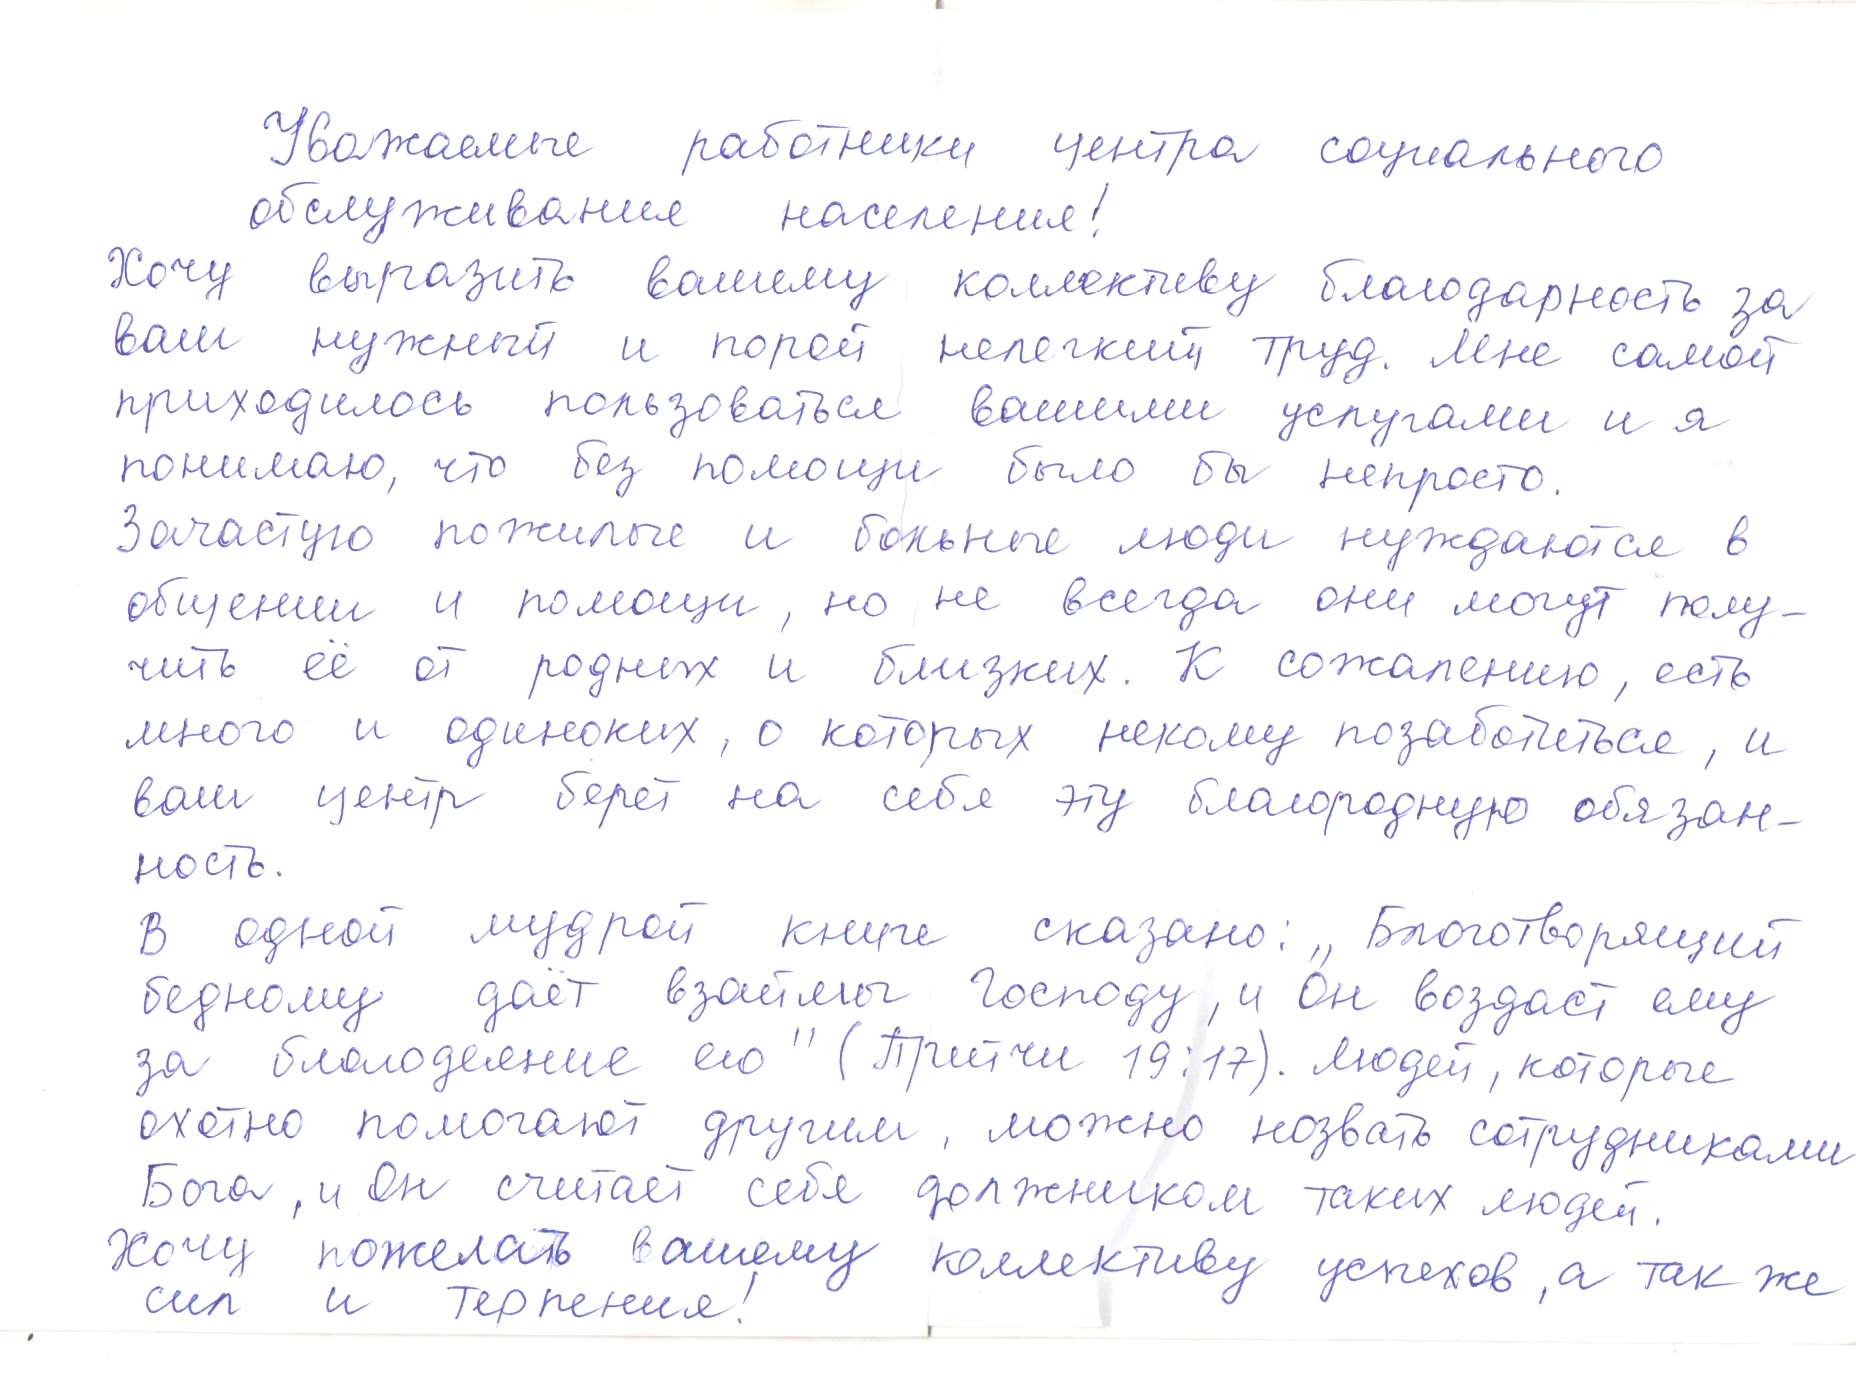 Уважаемые работники центра социального
обслуживания населения!
Хочу выразить вашему коллективу благодарность за
ваш нужный и порой нелегкий труд. Мне самой
приходилось пользоваться вашими услугами и я
понимаю, что без помощи было бы непросто.
Зачастую пожилые и больные люди нуждаются в
общении и помощи, но не всегда они могут полу-
чить её от родных и близких. К сожалению, есть
много и одиноких, о которых некому позаботиться, и
ваш центр берет на себя эту благородную обязан-
ность.
В одной мудрой книге сказано: „Благотворящий
бедному даёт взаймы Господу, и Он воздаст ему
за благодеяние его" (Притчи 19:17). Людей, которые
охотно помогают другим, можно назвать сотрудниками
Бога, и Он считает себя должником таких людей.
Хочу пожелать вашему коллективу успехов, а так же
сил и терпения!